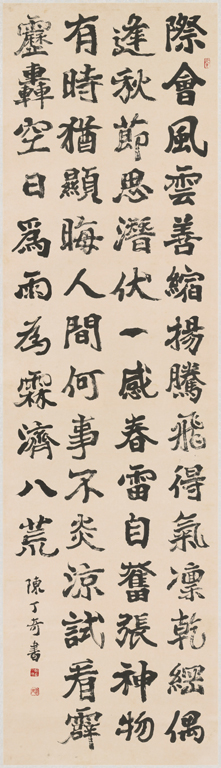 際會風雲善縮揚騰飛得氣凜乾綱偶
逢秋節思潛伏一感春雷自奮張神物
有時猶顯晦人間何事不炎涼試看霹
靂轟空日爲雨為霖濟八荒
陳丁奇書